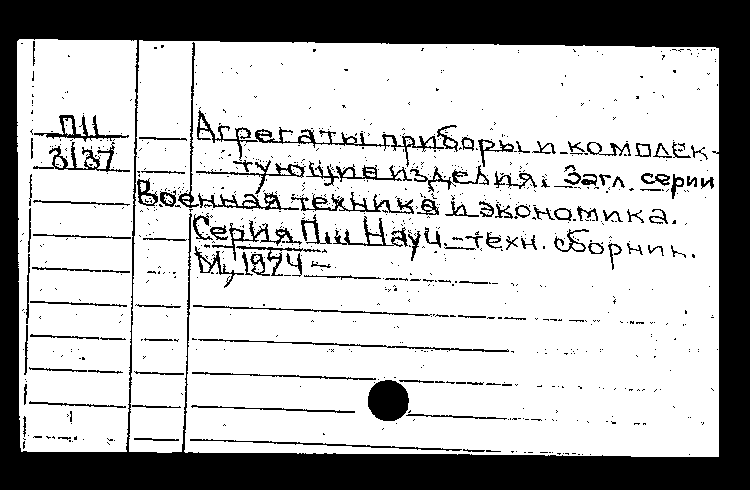 П11
3/37
Агрегаты приборы и комплек-
тующие изделия. Загл. серии
Военная техника и экономика.
Серия П... Науч.-техн. сборник.
М., 1974 -